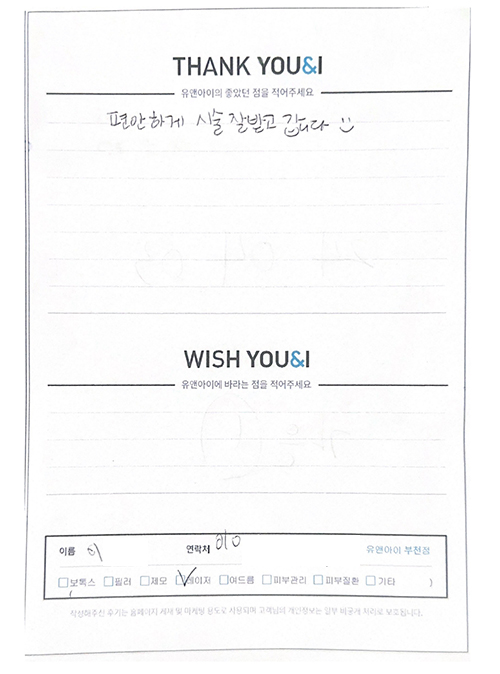 THANK YOU&I
유앤아이의 좋았던 점을 적어주세요
편안하게 시술 잘받고 갑니다 :)
WISH YOU&I
유앤아이에 바라는 점을 적어주세요
이름 이 연락처 010 유앤아이 부천점
□보톡스 □필러 □제모 ☑레이저 □여드름 □피부관리 □피부질환 □기타 ( )
작성해주신 후기는 홈페이지 게재 및 마케팅 용도로 사용되며 고객님의 개인정보는 일부 비공개 처리로 보호됩니다.